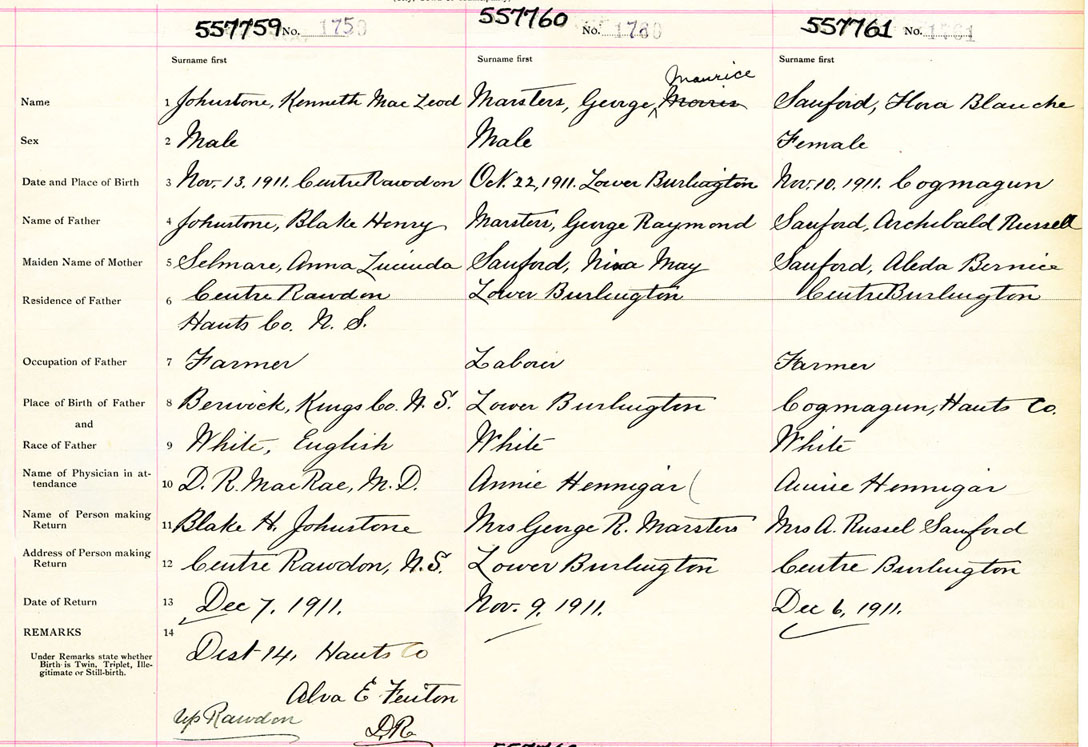 557759 No. 1759 557760 No. 1760 557761 No. 1761
Surname first Surname first Surname first
Maurice
Name 1 Johnstone, Kenneth MacLeod Marsters, George, Morris Sanford, Flora Blanche
Sex 2 Male Male Female
Date and Place of Birth 3 Nov. 13. 1911. Centre Rawdon Oct. 22, 1911. Lower Burlington Nov. 10. 1911. Cogmagun
Name of Father 4 Johnstone, Blake Henry Marsters, George Raymond Sanford, Archibald Russell
Maiden Name of Mother 5 Anna Lucinda Sanford, Nina May Sanford, Aleda Bernice
Residence of Father 6 Centre Rawdon Lower Burlington Centre Burlington
Hants Co. N. S.
Occupation of Father 7 Farmer Labour Farmer
Place of Birth of Father 8 Berwick, Kings Co. N. S. Lower Burlington Cogmagun, Hants Co.
and
Race of Father 9 White, English White White
Name of Physician in at-
tendance 10 D. R. MacRae, M. D. Annie Hennigar ( Annie Hennigar
Name of Person making
Return 11 Blake H. Johnstone Mrs George R. Marsters Mrs A. Russel Sanford
Address of Person making
Return 12 Centre Rawdon, N. S. Lower Burlington Centre Burlington
Date of Return 13 Dec 7. 1911. Nov. 9. 1911. Dec 6, 1911.
REMARKS 14
Under Remarks state whether
Birth is Twin, Triplet, Ille-
gitimate or Still-birth.
Dist 14, Hants Co
Alva E. Fenton
Up Rawdon D.R.